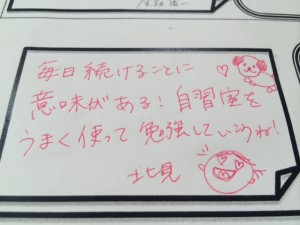 毎日続けることに
意味がある！自習室を
うまく使って勉強していこうね！
北見